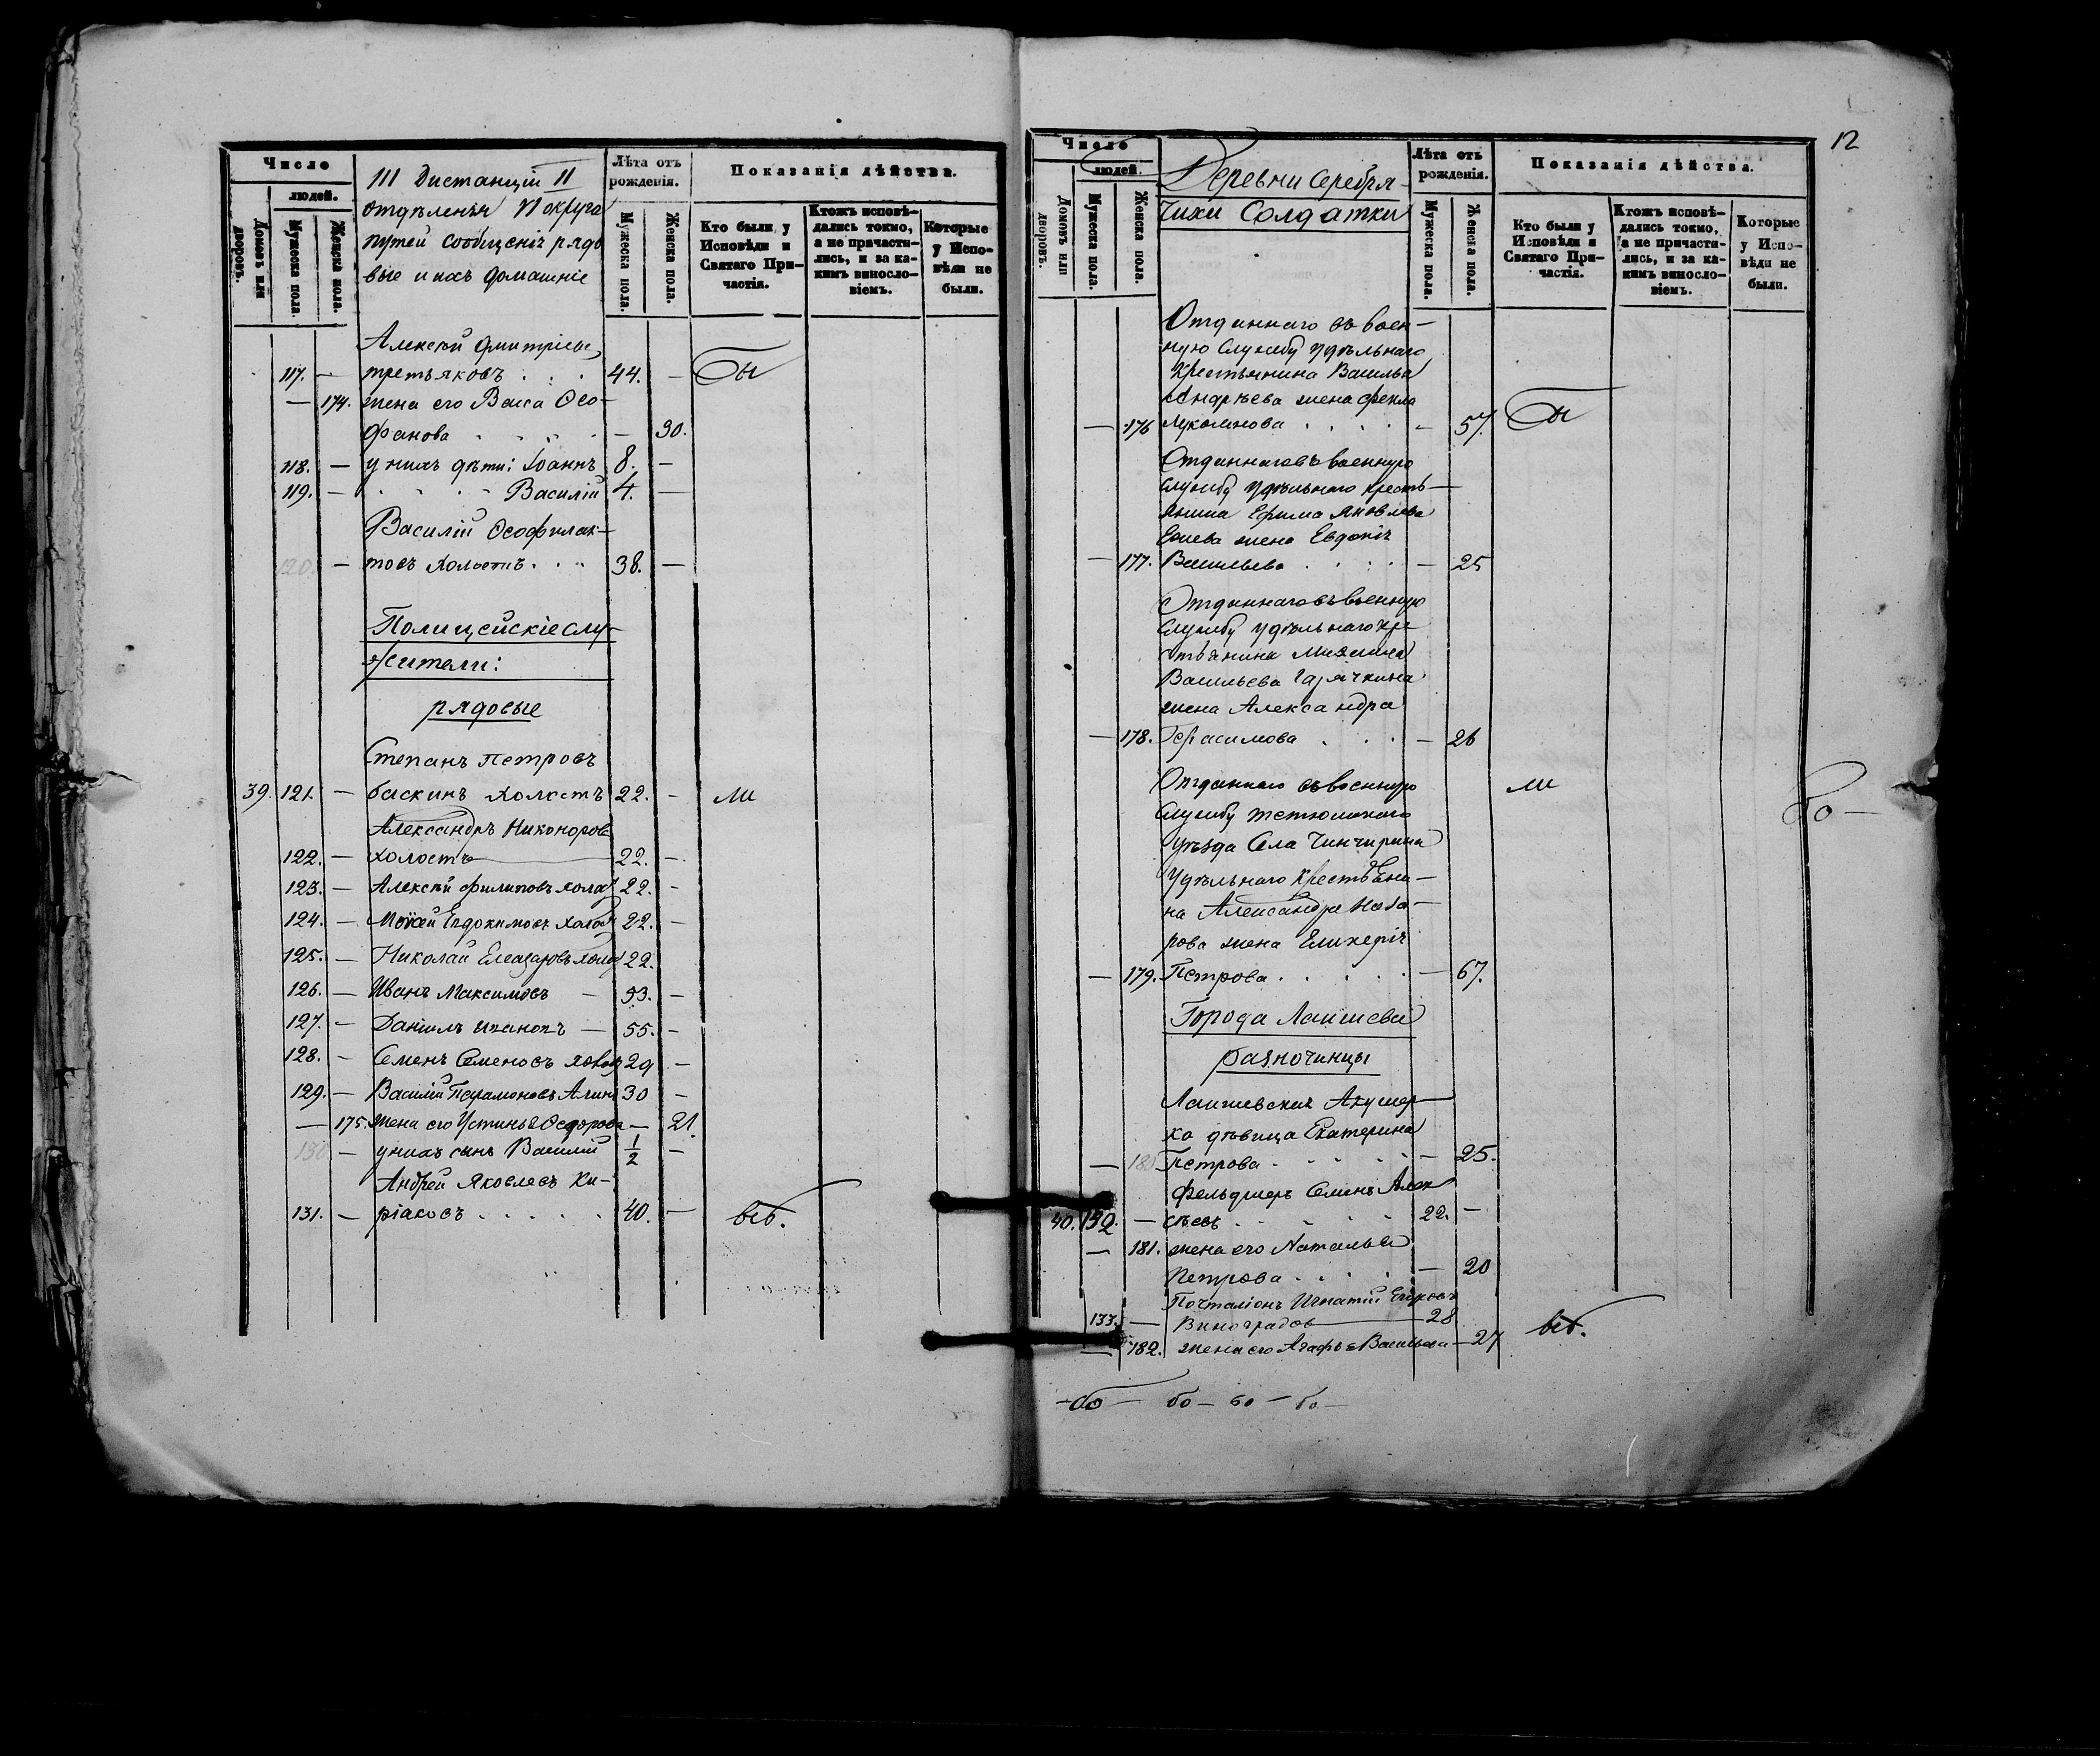 Число
людей.
Домовъ или дворовъ.
Мужеска пола.
Женска пола.
III Дистанціи II
отдѣленія VI округа
путей сообщенія рядо
вые и ихъ домашніе
Лѣта отъ рожденія.
Мужеска пола.
Женска пола.
Показанія дѣйства.
Кто были у Исповѣди и Святаго Причастія.
Ктожъ исповѣдались токмо, а не причастились, и за какимъ винословіемъ.
Которые у Исповѣди не были.
Алексѣй Дмитріевъ
117. — третьяковъ . . . 44. — Бы
— 174. жена его Васса Ѳео-
фанова . . . . — 30.
118. — у нихъ дѣти: Іоаннъ 8. —
119. — Василій 4. —
Василій Ѳеофилак-
120. — товъ холостъ . . . 38. —
Полицейскіе слу-
жители:
рядовые
Степанъ Петровъ
39. 121. — баскинъ холостъ 22. — ли
Александръ Никоноровъ
122. — холостъ 22. —
123. — Алексѣй Филиповъ холос 22. —
124. — Моѵсей Евдокимовъ холос 22. —
125. — Николай Елеазаровъ холос 22.
126. — Иванъ Максимовъ — 33. —
127. — Даніилъ Ивановъ — 55. —
128. — Семенъ Семеновъ 29 —
129. — Василій Парамоновъ 30 —
— 175. жена его Устинья Ѳедорова — 21.
130 — у нихъ сынъ Василій 1/2 —
Андрей Яковлевъ Ки-
131. — ріаковъ . . . . . 40. — всѣ.
12
Число
людей.
Домовъ или дворовъ.
Мужеска пола.
Женска пола.
Деревни Серебря-
чихи Солдатки
Лѣта отъ рожденія.
Мужеска пола.
Женска пола.
Показанія дѣйства.
Кто были у Исповѣди и Святаго Причастія.
Ктожъ исповѣдались токмо, а не причастились, и за какимъ винословіемъ.
Которые у Исповѣди не были.
Отданнаго въ воен-
ную службу удѣльнаго
крестьянина Василья
Андрѣева жена Фекла
— 176 Лукоянова . . . . — 57. Бы
Отданнаго въ военную
службу удѣльнаго кресть-
янина Ефима Яковлева
жена Евдокія
— 177. Васильева . . . . — 25
Отданнаго въ военную
службу удѣльнаго кре
стьянина Михаила
Васильева Гарячкина
жена Александра
— 178. Герасимова . . . — 26
Отданнаго въ военную ли
службу тетюшскаго
уѣзда Села Чинчурина
удѣльнаго крестьяни-
на Александра Наза-
рова жена Гликерія
— 179. Петрова . . . . . — 67.
бо —
Города Лаишева
разночинцы
Лаишевская Акушер-
ка дѣвица Екатерина
— 180 Петрова . . . . . — 25.
Фельдшеръ Семенъ Алек
40. 132. — сѣевъ . . . . . 22. —
— 181. жена его Наталья
Петрова . . . . — 20
Почталіонъ Игнатій Егоровъ
133. — Виноградов 28
— 182. жена его Агафья Васильева — 27 всѣ.
— бо — бо — бо — бо —